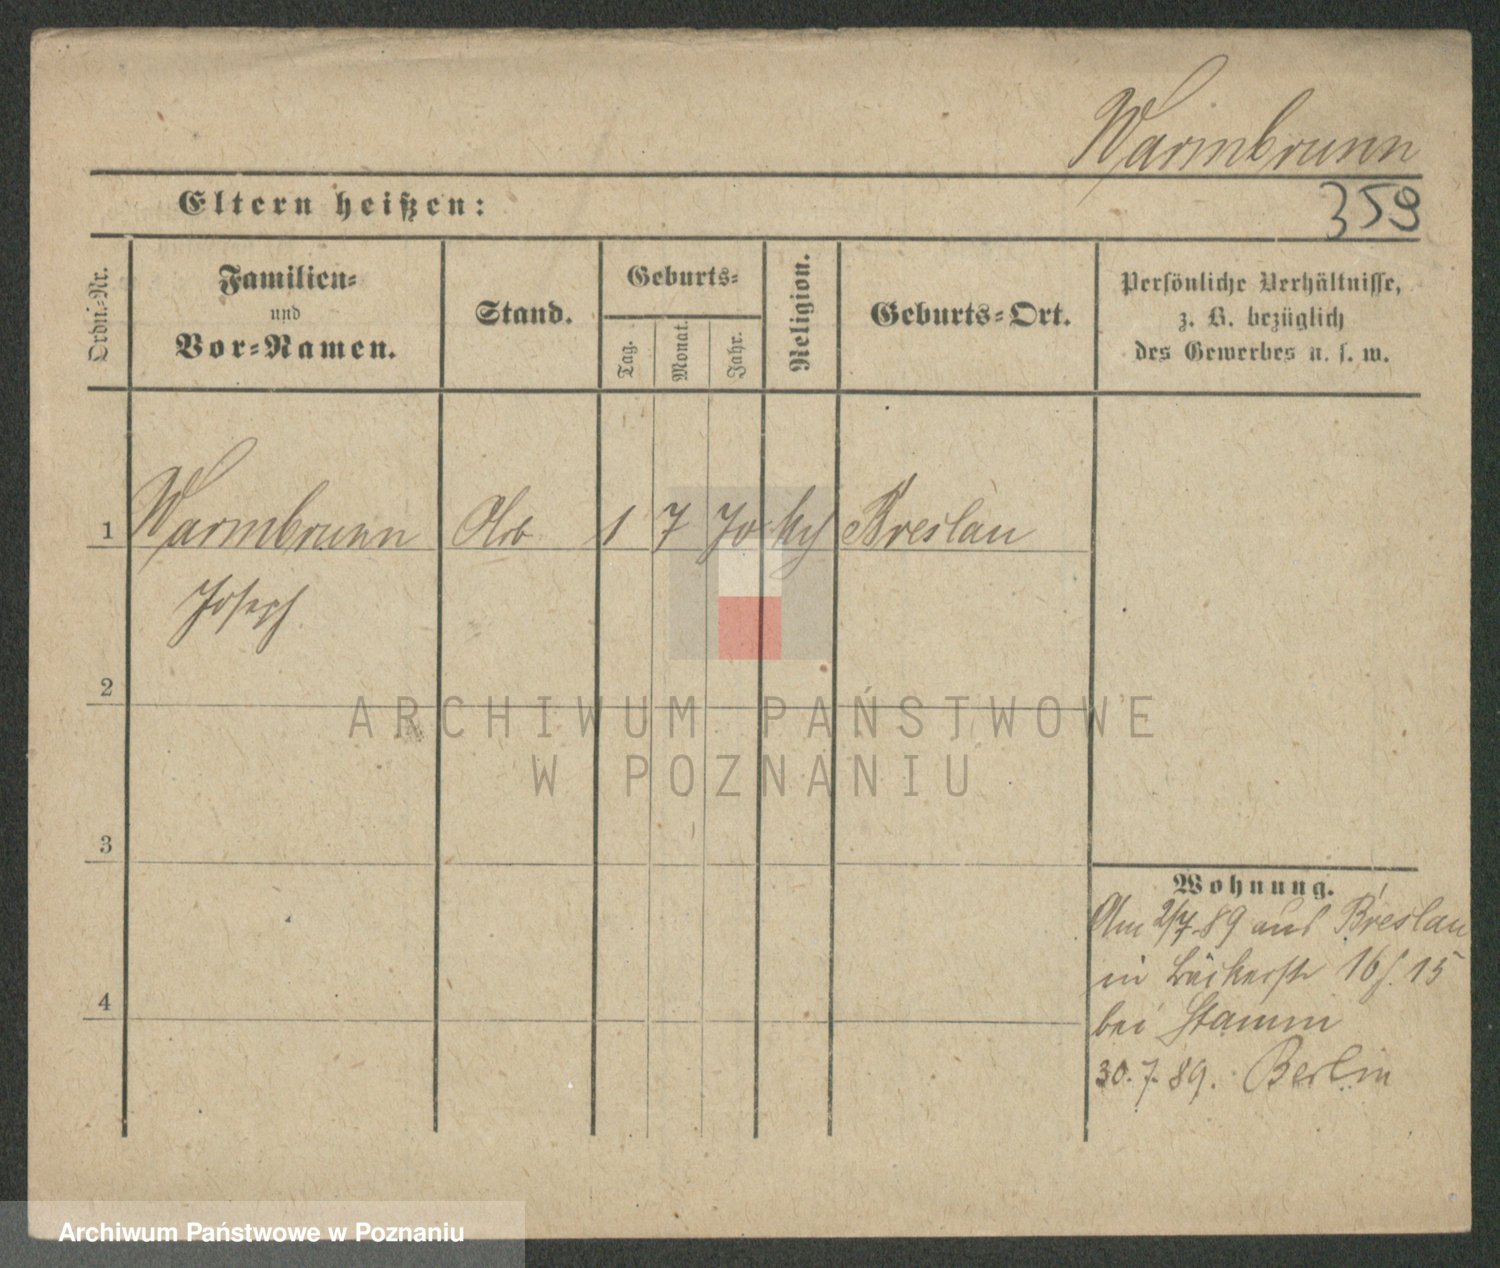 Warmbrunn
359
Eltern heißen:
Ordn.-Nr.
Familien-
und
Vor-Namen.
Stand.
Geburts-
Tag.
Monat.
Jahr.
Religion.
Geburts-Ort.
Persönliche Verhältnisse,
z. B. bezüglich
des Gewerbes u. s. w.
1 Warmbrunn Arb 1 7 70 Breslau
Joseph
2
3
4
ARCHIWUM PAŃSTWOWE
W POZNANIU
Wohnung.
Am 2/7.89 aus Breslau
in Bäckerstr 16/. 15
bei Stamm
30.7.89. Berlin
Archiwum Państwowe w Poznaniu